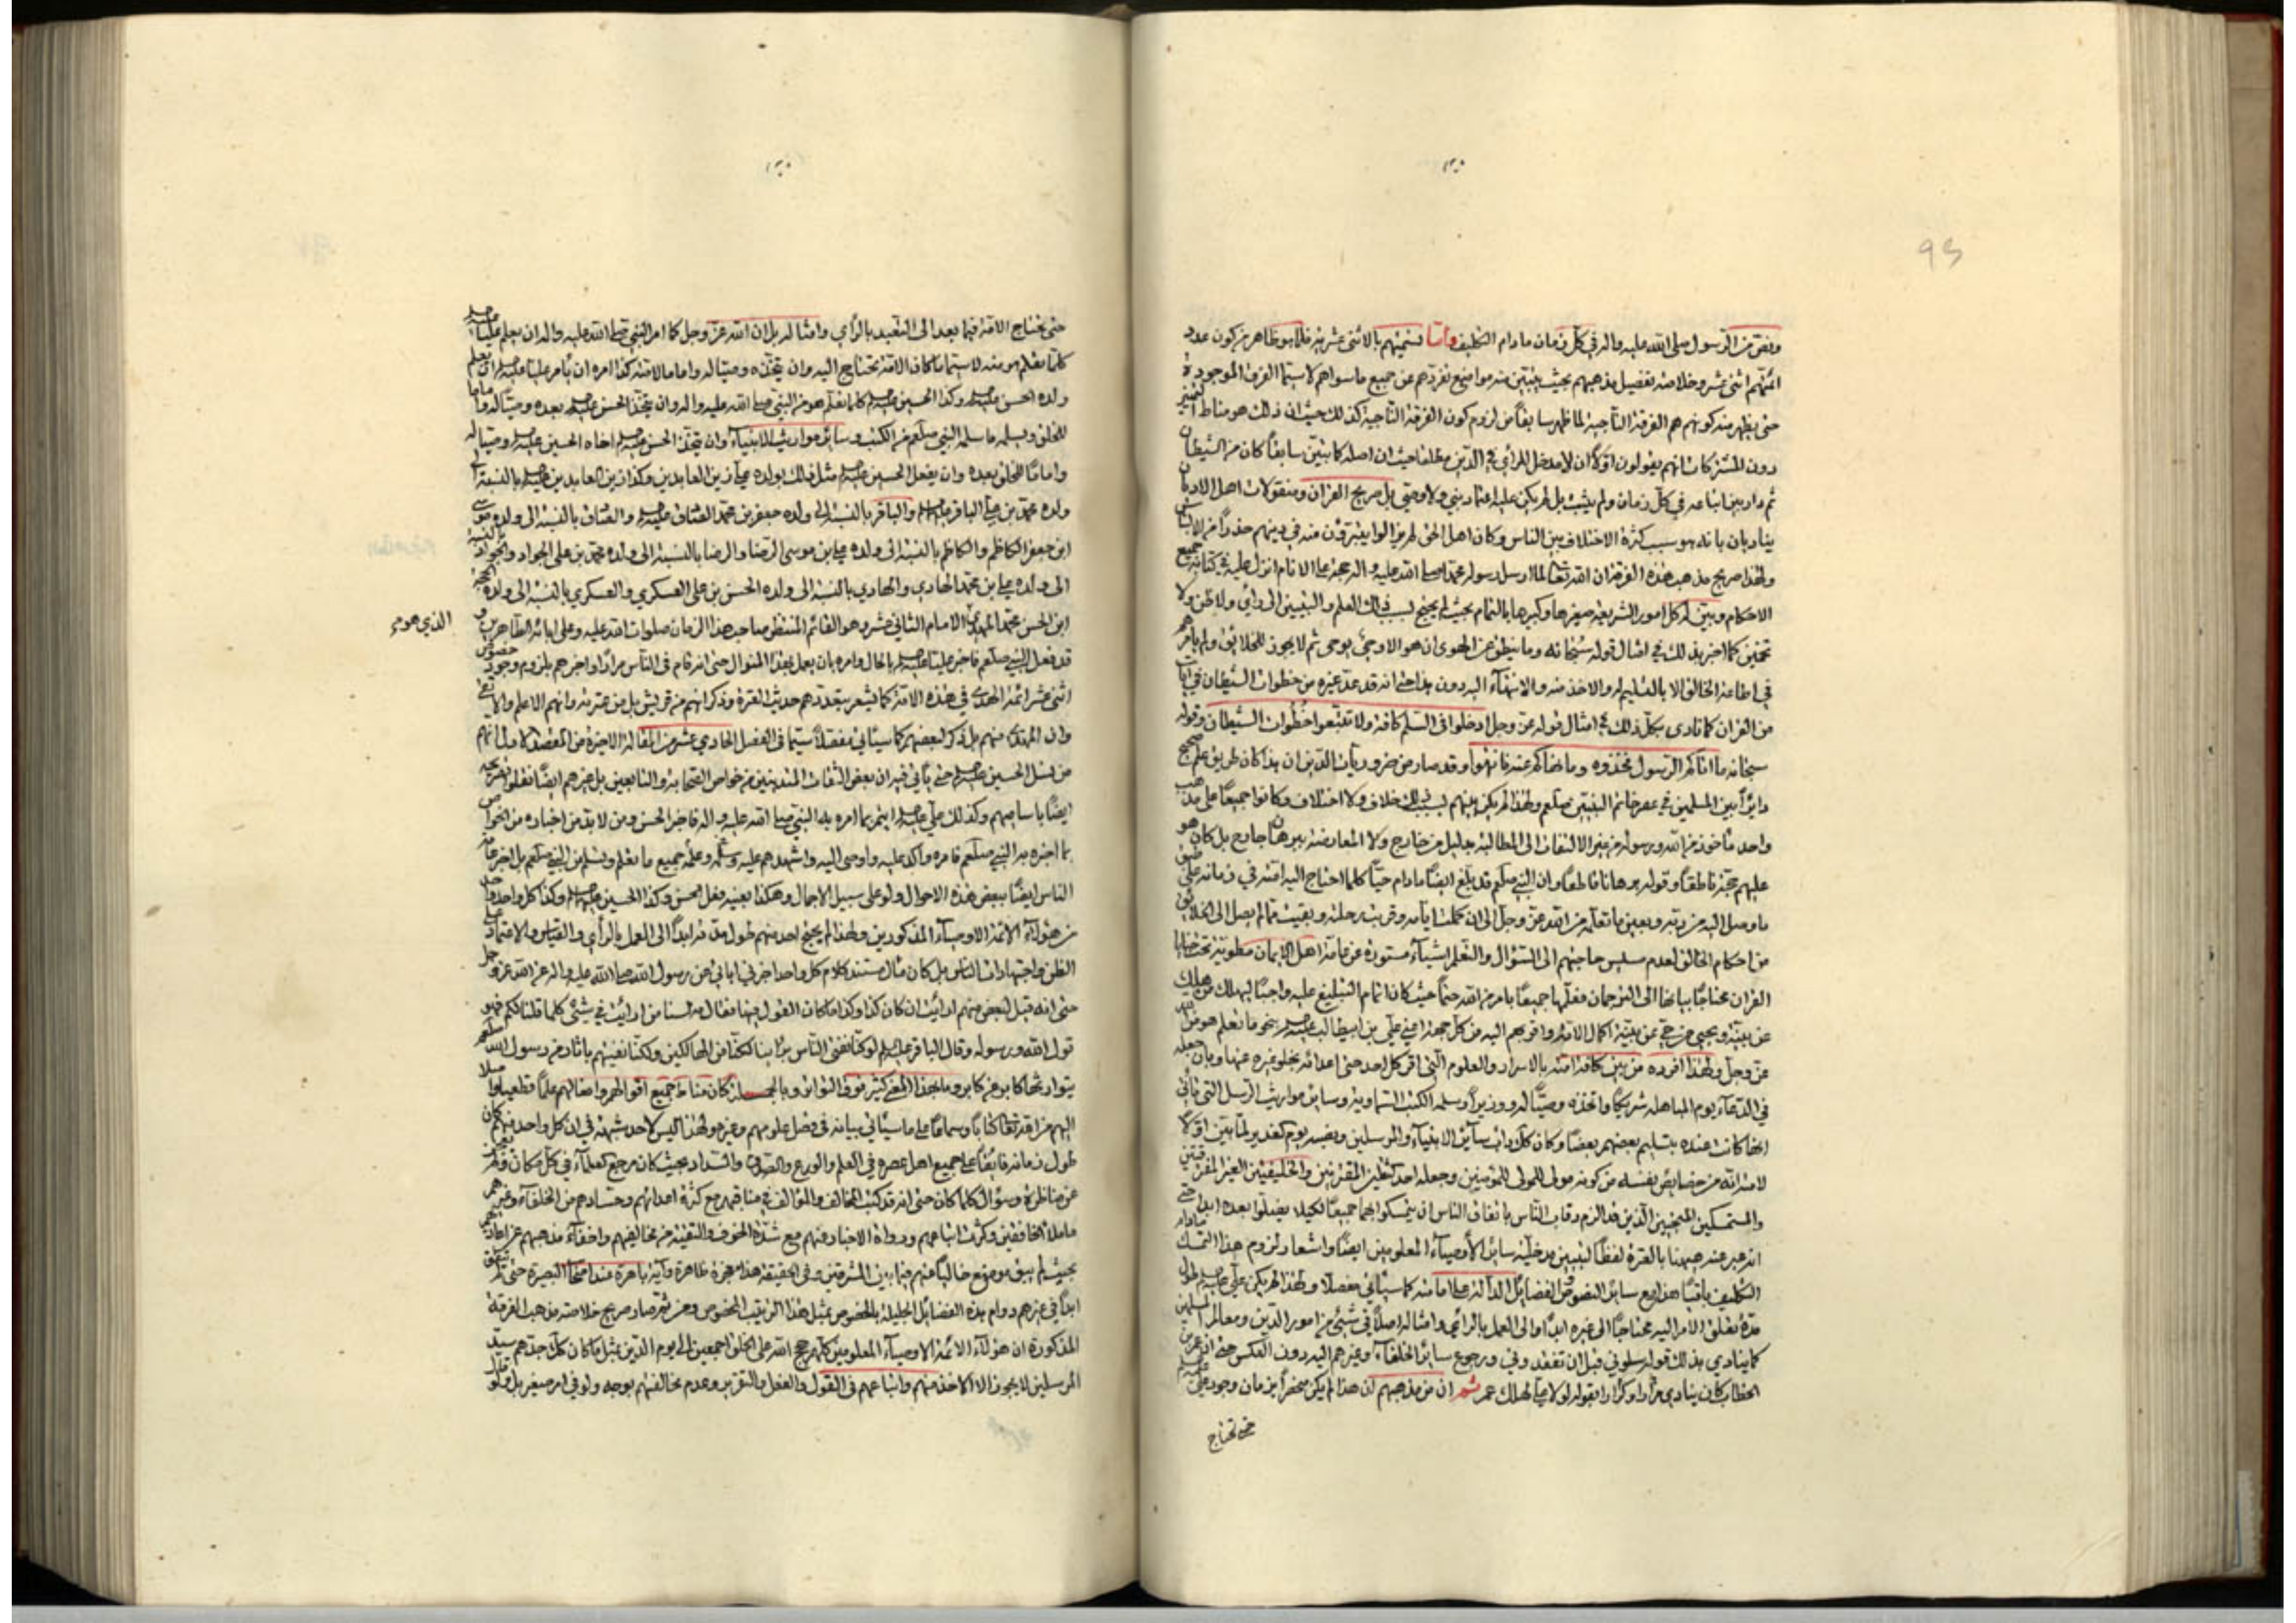 ونص من الرسول صلى الله عليه واله في كل زمان مادام التكليف واما تسميتهم بالاثنى عشرية فلما هو ظاهر من كون عدد
ائمتهم اثنى عشر وخلاصة تفصيل مذهبهم بحيث يتبين منه مواضع تفردهم عن جميع ماسواهم لاسيما الفرق الموجودة
حتى يظهر منه كونهم هم الفرقة الناجية لما ظهر سابقا من لزوم كون الفرقة الناجية كذلك حيث ان ذلك هو مناط التميز
دون المشتركات انهم يقولون اولا ان لامدخل للرأي في الدين مطلقا حيث ان اصله كما تبين سابقا كان من الشيطان
ثم دار بين اتباعه في كل زمان ولم يثبت بل لم يكن عليه اعتماد نبي ولا وصي بل صريح القران ومنقولات اهل الاديان
يناديان بانه هو سبب كثرة الاختلاف بين الناس وكان اهل الحق لم يزالوا يتبرؤن منه في دينهم حذرا من الالتباس
ولهذا صريح مذهب هذه الفرقة ان الله تعالى لما ارسل رسوله محمدا صلى الله عليه واله حجة على الانام انزل عليه في كتابه جميع
الاحكام وبين له كل امور الشريعة صغيرها وكبيرها بالتمام بحيث لم يحتج بسبب ذلك العلم والتبيين الى رأي ولا ظن ولا
تخمين كما اخبر بذلك في امثال قوله سبحانه وما ينطق عن الهوى ان هو الا وحي يوحى ثم لا يجوز للخلائق ولم يأمرهم
في اطاعة الخالق الا بالتسليم له والاخذ منه والانتهاء اليه دون هذا حتى انه قد عد غيره من خطوات الشيطان في آيات
من القران كما نادى بكل ذلك في امثال قوله عز وجل ادخلوا في السلم كافة ولا تتبعوا خطوات الشيطان وقوله
سبحانه ما اتاكم الرسول فخذوه وما نهاكم عنه فانتهوا وقد صار من ضروريات الدين ان هذا كان طريق علم صحيح
دائرا بين المسلمين في عصر خاتم النبيين صلعم ولهذا لم يكن بينهم بسبب ذلك خلاف ولا اختلاف وكانوا جميعا على مذهب
واحد مأخوذ من الله ورسوله من غير الالتفات الى المطالبة بدليل من خارج ولا المعارضة ببرهان خارج بل كان هو
عليهم حجة ناطقا وقوله برهانا قاطعا وان النبي صلعم قد بلغ ايضا مادام حيا كلما احتاج اليه امته في زمانه على طبق
ما وصل اليه من ربه وبعين ما تعلمه من الله عز وجل الى ان كملت ايامه وقربت رحلته وبقيت مما لم يصل الى الخلائق
من احكام الخالق لعدم مسيس حاجتهم الى السؤال والتعلم اشياء مستورة عن عامة اهل الايمان مطوية تحت خبايا
القران محتاجا بيانها الى الترجمان فعلمها جميعا بامر من الله حتما حيث كان اتمام التبليغ عليه واجبا ليهلك من هلك
عن بينة ويحيى من حي عن بينة اكمل الامة واقربهم اليه من كل جهة اعني علي بن ابيطالب عليه السلم بنحو ما تعلم هو من الله
عز وجل ولهذا افرده من بين كافة امته بالاسرار والعلوم التي اقر كل احد حتى اعدائه بخلو غيره عنها وبان جعله
في الدعاء يوم المباهلة شريكا واتخذه وصيا له ووزيرا وسلمه الكتب السماوية وسائر مواريث الرسل التي تأتي
انها كانت عنده بتسليم بعضهم بعضا وكان كل ذلك دأب سائر الانبياء والمرسلين ونصبه يوم الغدير لما تبين اولا
لامته انه من خصايص نفسه من كونه مولى المولى للمؤمنين وجعله احد الثقلين المقترنين والخليفتين الغير المفترقين
والمستمسكين المنجيين الذين قد الزم رقاب الناس باتفاق الناس ان يتمسكوا بهما جميعا لكيلا يضلوا بعده ابدا حتى
انه عبر عنه هيهنا بالعترة لفظا لتبيين مدخلية سائر الأوصياء المعلومين ايضا واشعار لزوم هذا التمسك مادام
التكليف باقيا هذا مع سائر النصوص والفضائل الدالة على امامته كما سيأتي مفصلا ولهذا لم يكن علي عليه السلم طول
مدة تعلق الامر اليه محتاجا الى غيره ابدا ولا الى العمل بالرأي وامثاله اصلا في شيء من امور الدين ومعالم المسلمين
كما ينادي بذلك قوله سلوني قبل ان تفقدوني ورجوع سائر الخلفاء وغيرهم اليه دون العكس حتى ان عمر بن
الخطاب كان ينادي مرارا وكرارا بقوله لولا علي لهلك عمر ثم ان من مذهبهم ان هذا لم يكن منحصرا بزمان وجود علي عليه السلم
حتى تحتاج
حتى تحتاج الامة فيما بعد الى التعبد بالرأي وامثاله بل ان الله عز وجل كما امر النبي صلى الله عليه واله ان يعلم عليا عليه السلم
كلما تعلم هو منه لاسيما ما كان الامة تحتاج اليه وان يتخذه وصيا له واماما لامته كذا امره ان يأمر عليا عليه السلم ان يعلم
ولده الحسن عليه السلم وكذا الحسين عليه السلم كلما تعلم هو من النبي صلى الله عليه واله وان يتخذ الحسن عليه السلم بعده وصيا له واماما
للخلق ويسلمه ما سلمه النبي صلعم من الكتب وسائر مواريث الانبياء وان يتخذ الحسن عليه السلم اخاه الحسين عليه السلم وصيا له
واماما للخلق بعده وان يفعل الحسين عليه السلم مثل ذلك بولده علي زين العابدين وكذا زين العابدين عليه السلم بالنسبة الى
ولده محمد بن علي الباقر عليه السلم والباقر بالنسبة الى ولده جعفر بن محمد الصادق عليه السلم والصادق بالنسبة الى ولده موسى
ابن جعفر الكاظم والكاظم بالنسبة الى ولده علي بن موسى الرضا والرضا بالنسبة الى ولده محمد بن علي الجواد والجواد بالنسبة
الى ولده علي بن محمد الهادي والهادي بالنسبة الى ولده الحسن بن علي العسكري والعسكري بالنسبة الى ولده الحجة
ابن الحسن محمد المهدي الامام الثاني عشر وهو القائم المنتظر صاحب هذا الزمان صلوات الله عليه وعلى ابائه الطاهرين و
الذي هو م
قد فعل النبي صلعم فاخبر عليا عليه السلم بالحال وامره بان يعمل بهذا المنوال حتى انه قام في الناس مرارا واخبرهم بلزوم وجود خصوص
اثنى عشر ائمة الهدى في هذه الامة كما يشعر بتعددهم حديث العترة وذكر انهم من قريش بل من عترته وانهم الاعلم والاتقى
وان المهدي منهم بل ذكر لبعضهم كما سيأتي مفصلا سيما في الفصل الحادي عشر من المقالة الاخيرة من المقصد الاول انهم
من نسل الحسين عليه السلم حتى يأتي فيه ان بعض الثقات المتدينين من خواص الصحابة والتابعين بل غيرهم ايضا نقلوا تصريحه
ايضا باساميهم وكذلك علي عليه السلم ايتمر بما امره به النبي صلى الله عليه واله فاخبر الحسن ومن لابد من اخباره من الخواص
بما اخبره به النبي صلعم فامره واكد عليه واوصى اليه واشهدهم عليه وسلمه وعلمه جميع ما تعلم وتسلم من النبي صلعم بل اخبر عامة
الناس ايضا ببعض هذه الاحوال ولو على سبيل الاجمال وهكذا بعينه فعل الحسن وكذا الحسين عليه السلم وكذا كل واحد واحد
من هؤلاء الائمة الاوصياء المذكورين ولهذا لم يحتج احد منهم طول مدته ابدا الى العمل بالرأي والقياس والاعتماد على
الظن واجتهادات الناس بل كان مثال مستند كلام كل واحد اخبرني ابائي عن رسول الله صلى الله عليه واله عن الله عز وجل
حتى انه قيل لبعض منهم ارايت ان كان كذا وكذا ما كان القول فيها فقال مه لسنا من ارايت في شيء كلما قلنا لكم فهو
قول الله ورسوله وقال الباقر عليه السلم لو كنا نفتي الناس برأينا لكنا من الهالكين ولكنا نفتيهم باثار من رسول الله
يتوارثها كابر عن كابر وما بهذا المعنى كثير فوق التواتر وبالجملة كان مناط جميع اقوالهم وافعالهم علما قطعيا واصلا
اليهم من الله تعالى كتابا وسماعا على ما سيأتي بيانه في فصل علومهم وغيره ولهذا ليس لاحد شبهة في ان كل واحد منهم كان
طول زمانه فائقا على جميع اهل عصره في العلم والورع والصدق والسداد بحيث كان مرجع العلماء في كل مكان
عن مناظرة وسؤال كلما كان حتى انه قد كتب المخالف والمؤالف في مناقبهم مع كثرة اعدائهم وحسادهم من الخلفاء وغيرهم
ما ملأ الخافقين وكثرت اتباعهم ورواة الاخبار منهم مع شدة الخوف والتقية من مخالفيهم واخفاء مذهبهم
بحيث لم يبق موضع خاليا عنهم فيما بين المشرقين وفي الحقيقة هذا معجزة ظاهرة وآية باهرة عند اصحاب البصيرة حتى لم يتفق
ابدا في غيرهم دوام هذه الفضائل الجليلة بالخصوص بمثل هذا الترتيب المخصوص ومن ثم صار صريح خلاصة مذهب الفرقة
المذكورة ان هؤلاء الائمة الاوصياء المعلومين كلهم حجج الله على الخلق اجمعين الى يوم الدين بمثل ما كان كل جدهم سيد
المرسلين لايجوز الا الاخذ منهم واتباعهم في القول والفعل والتقرير وعدم مخالفتهم بوجه ولو في امر صغير بل ولو